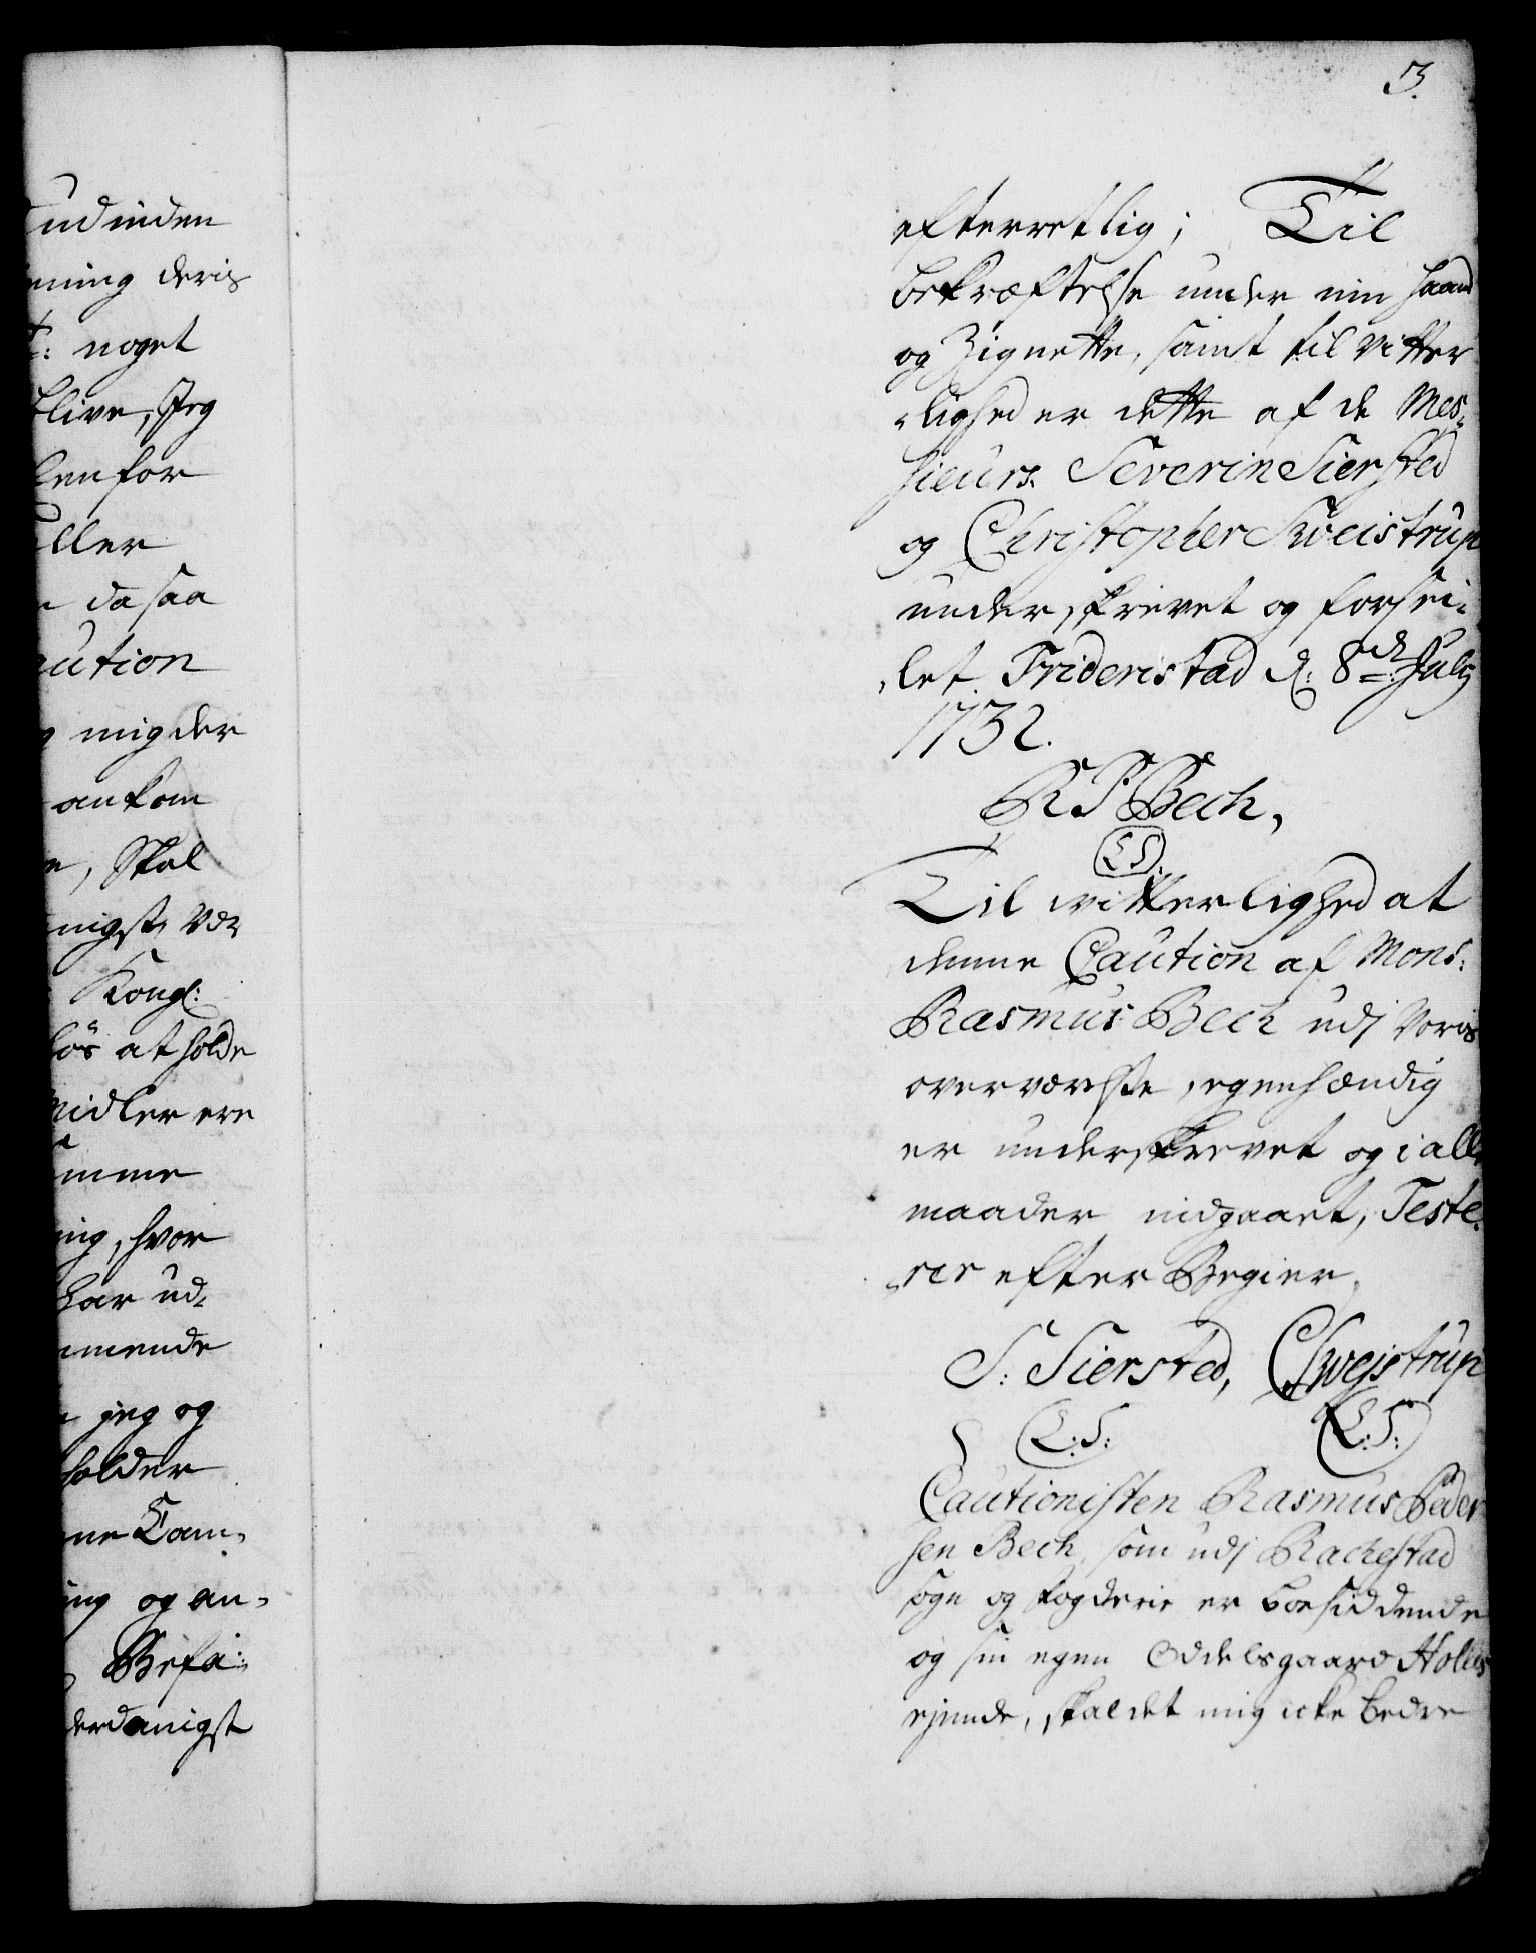 3.
udinden
ning deris
t: noget
blive, Jeg
len for
eller
da saa
aution
mig der
ankom
, Skal
nigst Vær
Kongl:
løs at holde
midler ere
imme
ing, hvor
har ud-
mende
jeg og
holder
ne Cam-
ing og an-
Befa:
derdanigst
efterretlig; Til
bekræftelse under min haand
og Zignette, samt til vitter
-lighed er dette af de Mes-
sieurs. Severin Siersted
og Christopher Sweistrup
underskrevet og forsei-
-let Friderichstad d: 8de July
1732.
R P Bech,
L S.
Til vitterlighed at
denne Caution af Mons:
Rasmus Bech udj Voris
overværelse, egenhændig
er underskrevet og i alle
maader indgaaet, Teste-
-rer efter Begier,
S: Siersted, CSweistrup
L:S: L:S:
Cautionisten Rasmus Peder
sen Bech, som udj Rackestad
sogn og fogderie er boesiddende
og sin egen Oddelsgaard Holus
ejende, skal det mig icke bedre